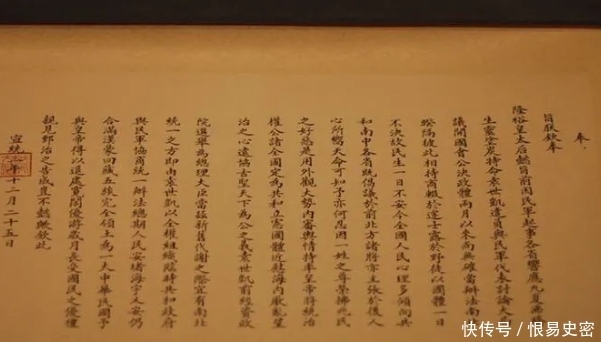 奉
旨朕欽奉
隆裕皇太后懿旨前因民軍起事各省響應九夏沸騰
生靈塗炭特命袁世凱遣員與民軍代表討論大局
議開國會公決政體兩月以來尚無確當辦法南北
睽隔彼此相持商輟於途士露於野徒以國體一日
不決故民生一日不安今全國人民心理多傾向共
和南中各省既倡議於前北方諸將亦主張於後人
心所嚮天命可知予亦何忍因一姓之尊榮拂兆民
之好惡是用外觀大勢內審輿情特率皇帝將統治
權公諸全國定為共和立憲國體近慰海內厭亂望
治之心遠協古聖天下為公之義袁世凱前經資政
院選舉為總理大臣當茲新舊代謝之際宜有南北
統一之方即由袁世凱以全權組織臨時共和政府
與民軍協商統一辦法總期人民安堵海宇乂安仍
合滿漢蒙回藏五族完全領土為一大中華民國予
與皇帝得以退處寬閒優游歲月長受國民之優禮
親見郅治之告成豈不懿歟欽此
宣統三年十二月二十五日
快传号/恨易史密